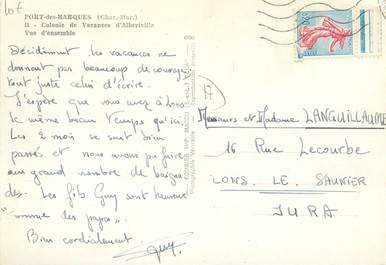 PORT-des-BARQUES (Char.-Mar.)
B - Colonie de Vacances d'Albertville
Vue d'ensemble
Décidément les vacances ne
donnent pas beaucoup de courage
tout juste celui d'écrire.
J'espère que vous avez à Lons
le même beau temps qu'ici.
Les 2 mois se sont bien
passés et nous avons pu faire
un grand nombre de baigna
des. Les fils Guy sont heureux
"comme des papes".
Bien cordialement.
Guy
17
Messieurs et Madame LANGUILLAUME
16 Rue Lecourbe
LONS. LE. SAUNIER
JURA